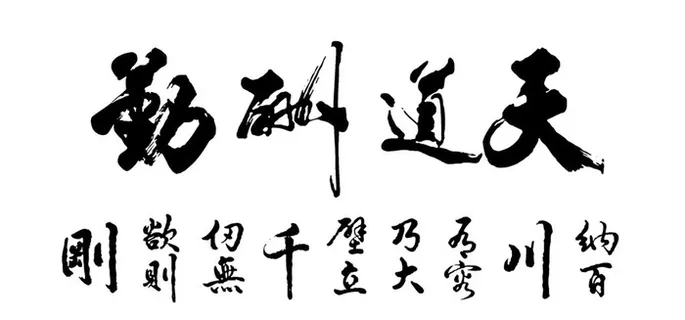 天道酬勤
納百川有容乃大壁立千仞無欲則剛